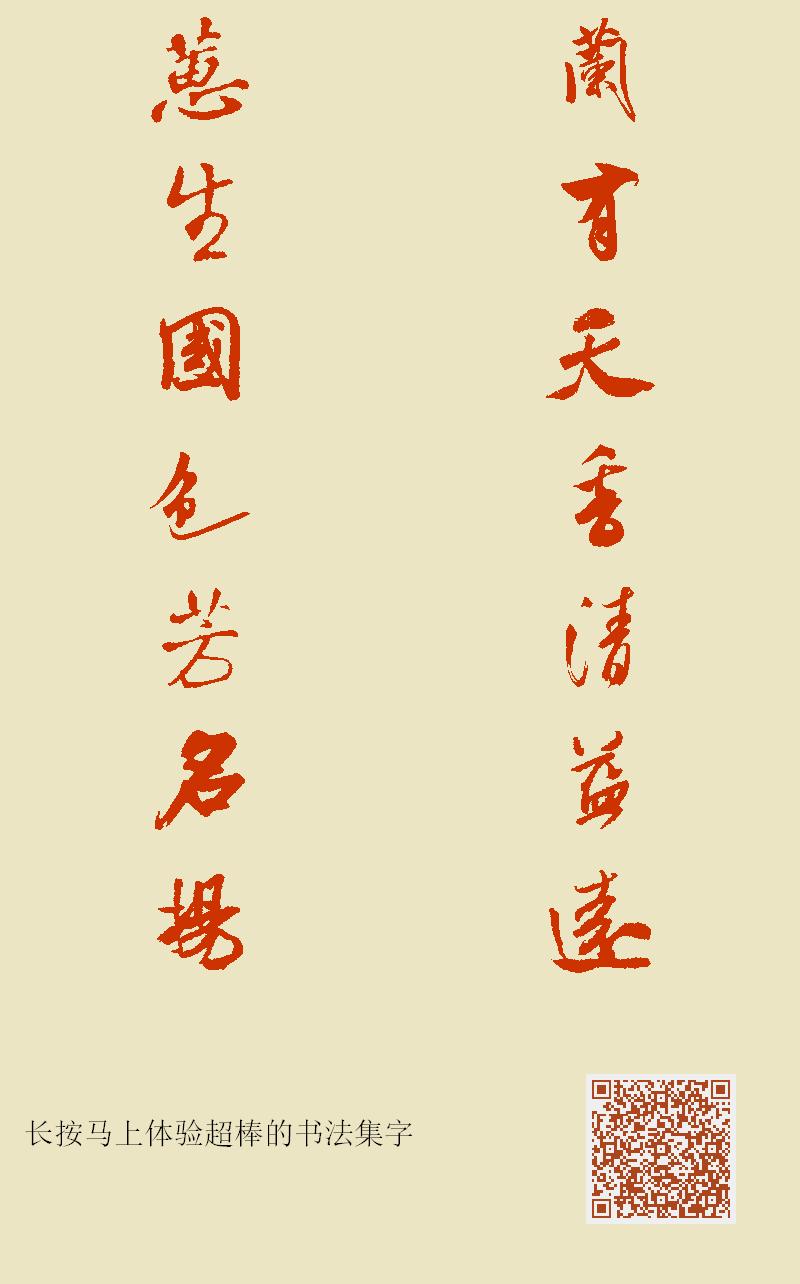 蘭有天香清益遠
蕙生國色芳名揚
长按马上体验超棒的书法集字